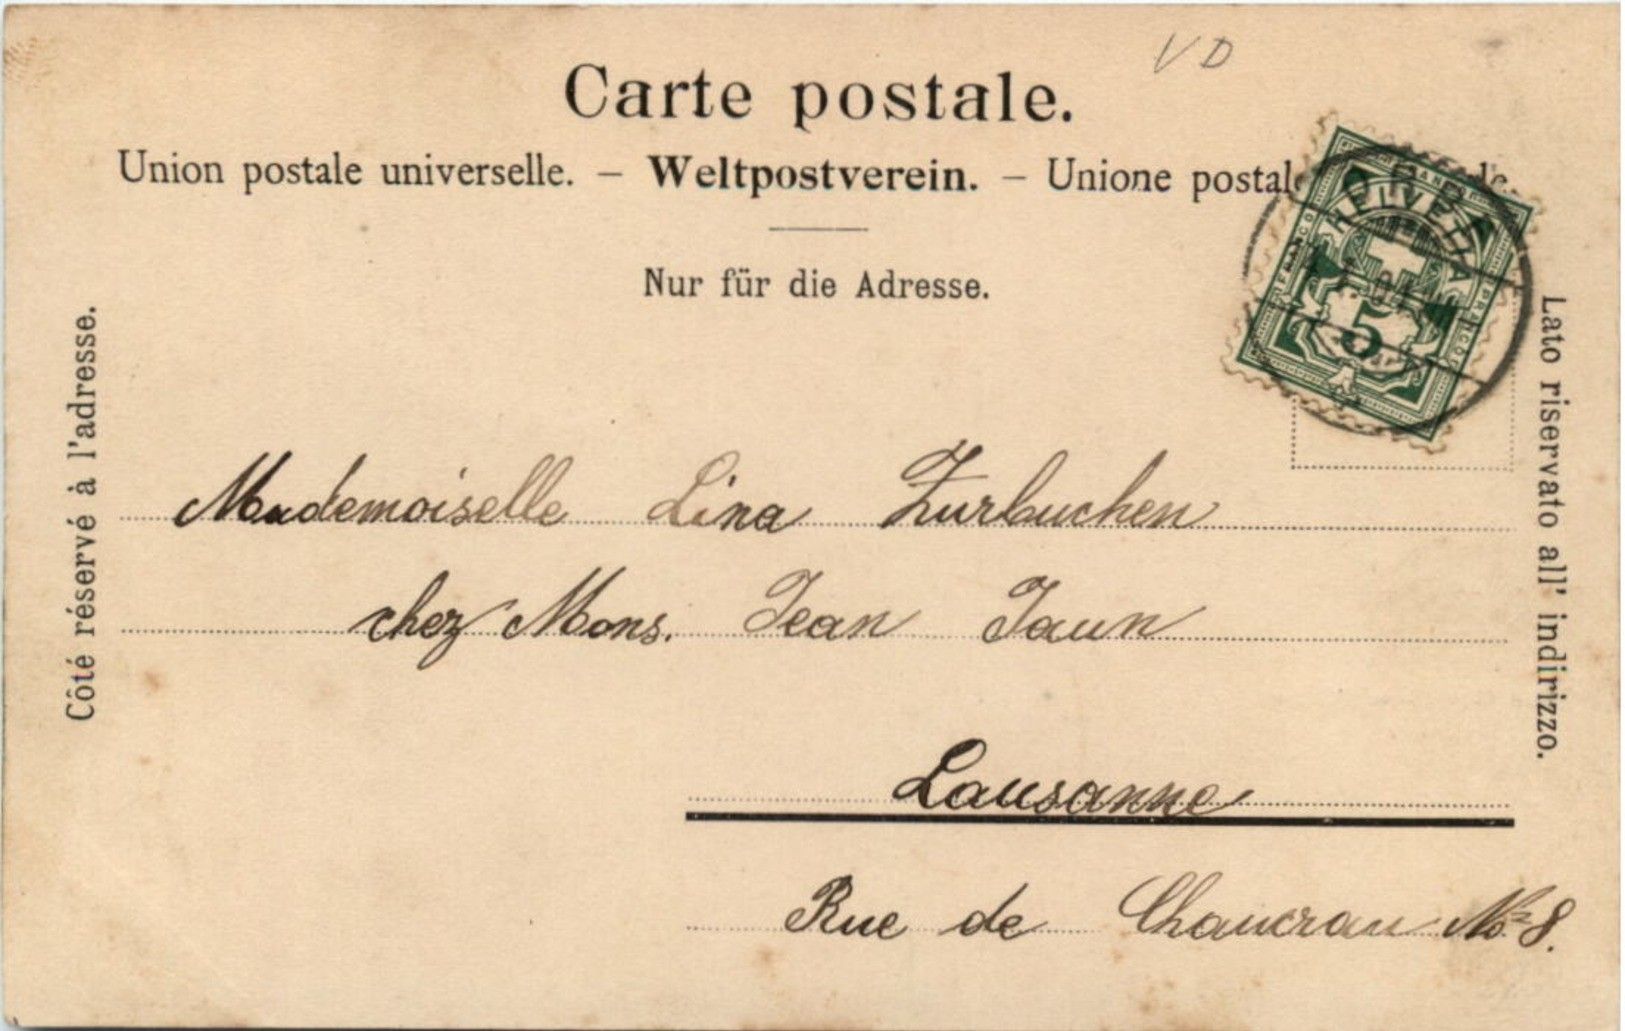 VD
Carte postale.
Union postale universelle. – Weltpostverein. – Unione postale
Nur für die Adresse.
Côté réservé à l'adresse.
Lato riservato all' indirizzo.
ORBE
HELVETIA
FRANCO
FRANCO
5
Mademoiselle Lina Zurbuchen
chez Mons. Jean Jaun
Lausanne
Rue de Chaucrau No 8.